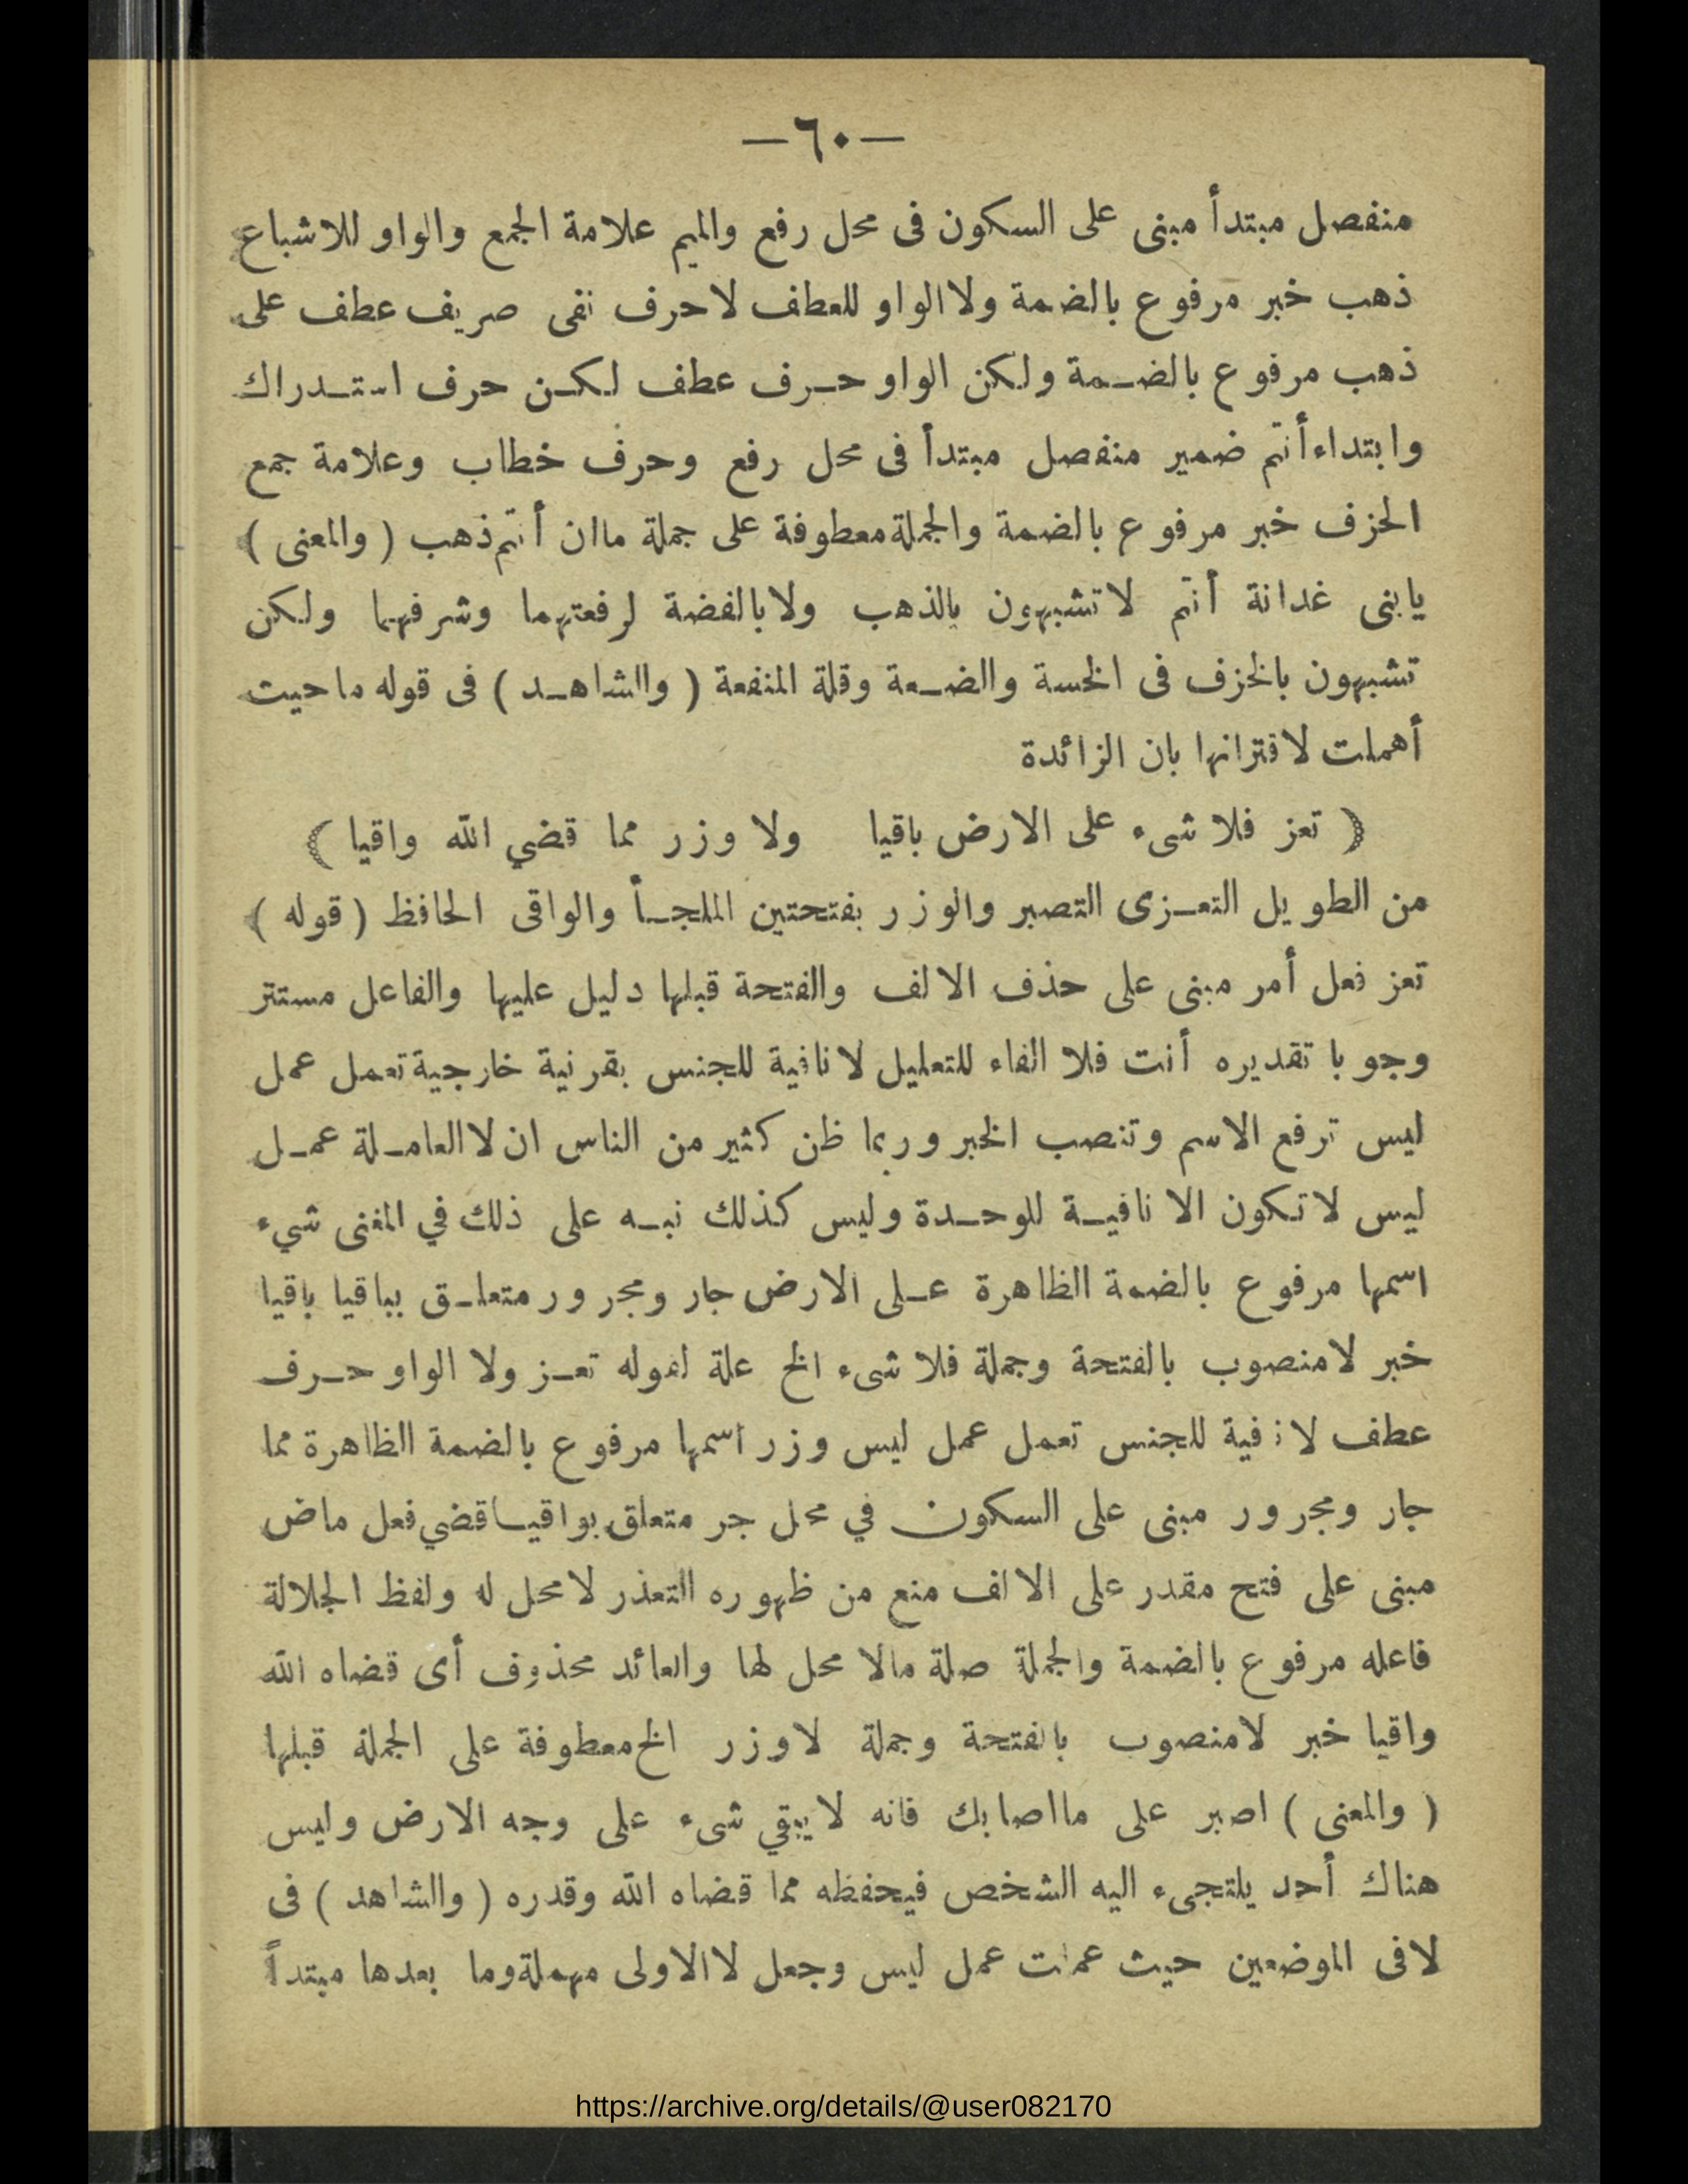 —٦٠—
منفصل مبتدأ مبنى على السكون فى محل رفع والميم علامة الجمع والواو للاشباع
ذهب خبر مرفوع بالضمة ولا الواو للعطف لا حرف نفى صريف عطف على
ذهب مرفوع بالضمة ولكن الواو حرف عطف لكن حرف استدراك
وابتداء أنتم ضمير منفصل مبتدأ فى محل رفع وحرف خطاب وعلامة جمع
الخزف خبر مرفوع بالضمة والجملة معطوفة على جملة ماان أنتم ذهب ( والمعنى )
يابنى غدانة أنتم لا تشبهون بالذهب ولا بالفضة لرفعتهما وشرفهما ولكن
تشبهون بالخزف فى الخسة والضعة وقلة المنفعة ( والشاهد ) فى قوله ما حيث
أهملت لاقترانها بان الزائدة
﴿ تعز فلا شىء على الارض باقيا ولا وزر مما قضي الله واقيا ﴾
من الطويل التعزى التصبر والوزر بفتحتين الملجأ والواقى الحافظ ( قوله )
تعز فعل أمر مبنى على حذف الالف والفتحة قبلها دليل عليها والفاعل مستتر
وجوبا تقديره أنت فلا الفاء للتعليل لا نافية للجنس بقرنية خارجية تعمل عمل
ليس ترفع الاسم وتنصب الخبر وربما ظن كثير من الناس ان لا العاملة عمل
ليس لا تكون الا نافية للوحدة وليس كذلك نبه على ذلك في المغنى شيء
اسمها مرفوع بالضمة الظاهرة على الارض جار ومجرور متعلق بباقيا باقيا
خبر لا منصوب بالفتحة وجملة فلا شىء الخ علة لقوله تعز ولا الواو حرف
عطف لا نافية للجنس تعمل عمل ليس وزر اسمها مرفوع بالضمة الظاهرة مما
جار ومجرور مبنى على السكون في محل جر متعلق بواقيا قضي فعل ماض
مبنى على فتح مقدر على الالف منع من ظهوره التعذر لا محل له ولفظ الجلالة
فاعله مرفوع بالضمة والجملة صلة مالا محل لها والعائد محذوف أى قضاه الله
واقيا خبر لا منصوب بالفتحة وجملة لا وزر الخ معطوفة على الجملة قبلها
( والمعنى ) اصبر على مااصابك فانه لا يبقي شىء على وجه الارض وليس
هناك أحد يلتجىء اليه الشخص فيحفظه مما قضاه الله وقدره ( والشاهد ) فى
لا فى الموضعين حيث عملت عمل ليس وجعل لا الاولى مهملة وما بعدها مبتدأً
https://archive.org/details/@user082170